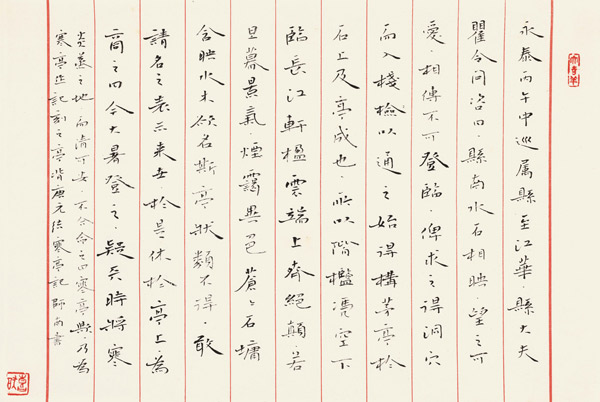 永泰丙午中巡屬縣至江華縣大夫
瞿令問咨曰縣南水石相映望之可
愛相傳不可登臨俾求之得洞穴
而入棧檢以通之始得構茅亭於
石上及亭成也所以階檻憑空下
臨長江軒楹雲端上齊絕顛若
旦暮景氣煙靄異色蒼々石墉
含映水木欲名斯亭狀類不得敢
請名之表示來世於是休於亭上為
商之曰今大暑登之疑天時將寒
炎蒸之地而清可安不合命之曰寒亭歟乃為
寒亭作記刻之亭背唐元结寒亭記師南書